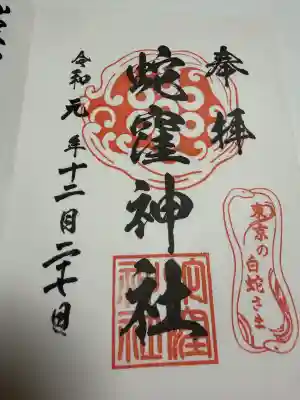 奉拝
蛇窪神社
令和元年十二月二十七日
東京の白蛇さま
蛇窪神社